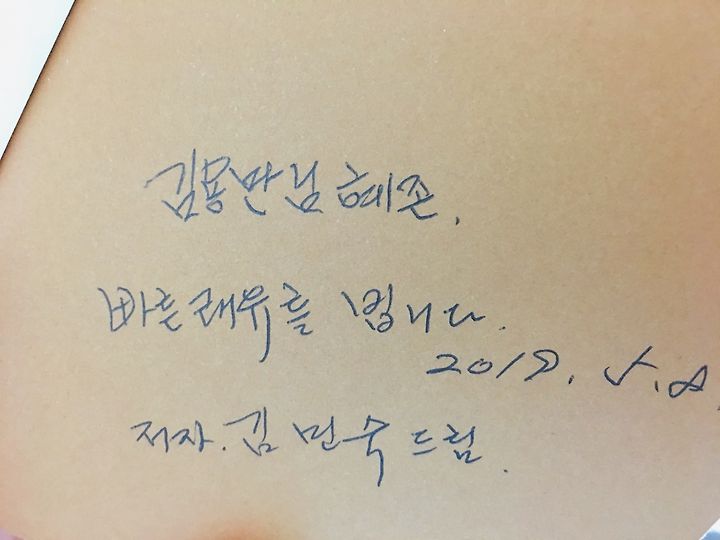 김용만님 혜존.
빠른 쾌유를 빕니다.
2019. 5. 8.
저자. 김민숙 드림.